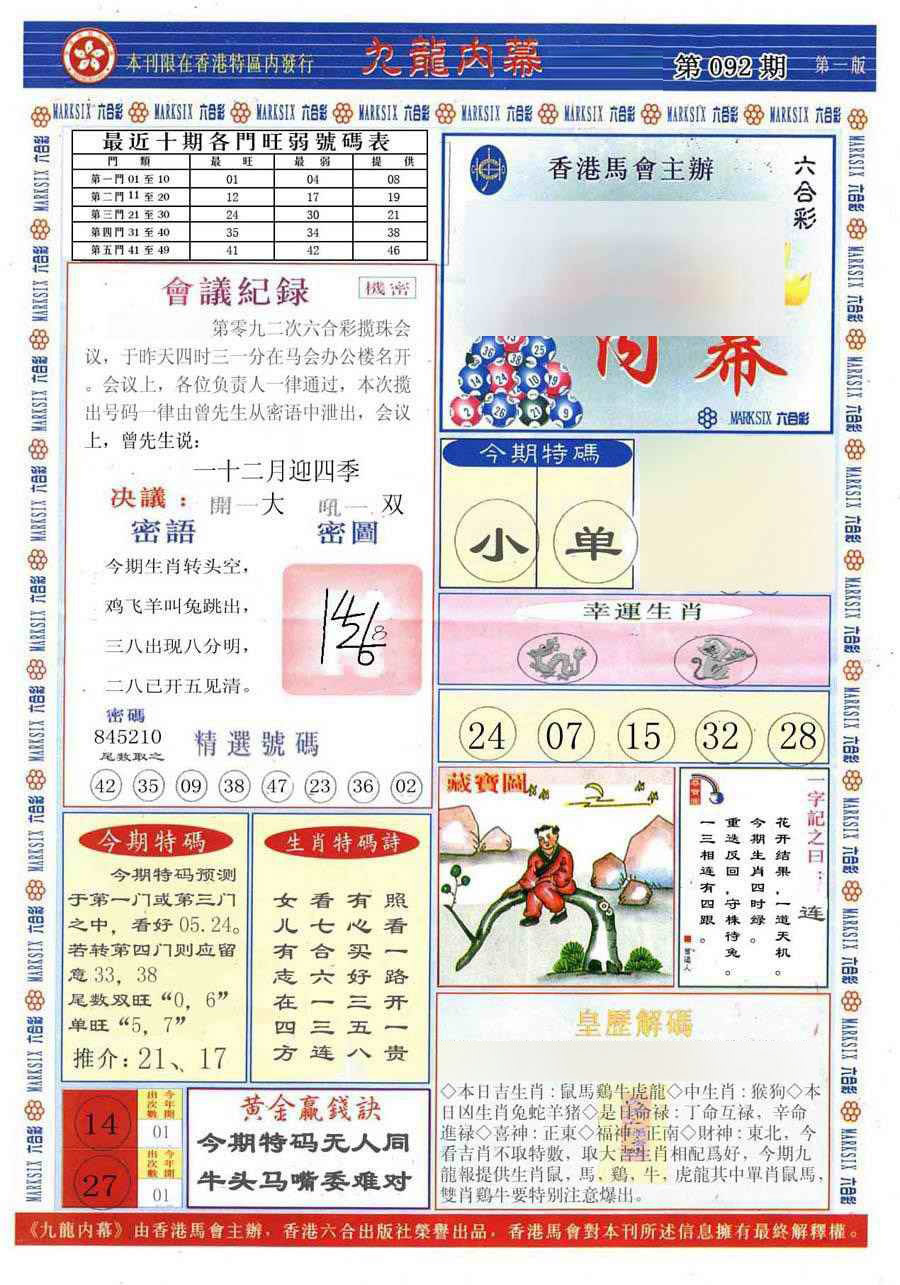 本刊限在香港特區内發行
九龍内幕
第 092 期
第一版
MARKSIX 六合彩
最近十期各門旺弱號碼表
門 類 最 旺 最 弱 提 供
第一門 01 至 10 01 04 08
第二門 11 至 20 12 17 19
第三門 21 至 30 24 30 21
第四門 31 至 40 35 34 38
第五門 41 至 49 41 42 46
會議紀録
機密
第零九二次六合彩揽珠会
议，于昨天四时三一分在马会办公楼名开
。会议上，各位负责人一律通过，本次揽
出号码一律由曾先生从密语中泄出，会议
上，曾先生说：
一十二月迎四季
决議： 開一大 吼一 双
密語 密圖
今期生肖转头空，
鸡飞羊叫兔跳出，
三八出现八分明，
二八已开五见清。
密碼
845210
尾数取之
精選號碼
42 35 09 38 47 23 36 02
香港馬會主辦
六合彩
内幕
36 25
14 24 10 19
2 26 21 9
MARKSIX 六合彩
今期特碼
小 单
幸運生肖
24 07 15 32 28
藏寶圖
一字記之曰：连
花开结果，一道天机。
今期生肖四时绿。
重迭反回，守株待兔。
一三相连有四跟。
今期特碼
今期特码预测
于第一门或第三门
之中，看好 05.24。
若转第四门则应留
意 33，38
尾数双旺“0，6”
单旺“5，7”
推介：21、17
生肖特碼詩
女看有照
儿七心看
有合买一
志六好路
在一三开
四三五一
方连八贵
皇歷解碼
◇本日吉生肖：鼠馬鷄牛虎龍◇中生肖：猴狗◇本
日凶生肖兔蛇羊猪◇是日命禄：丁命互禄，辛命
進禄◇喜神：正東◇福神：正南◇財神：東北，今
看吉生肖不取特數，取大吉生肖相配爲好，今期九
龍報提供生肖鼠，馬，鷄，牛，虎龍其中單肖鼠馬，
雙肖鷄牛要特别注意爆出。
14 今年開出次數 01
27 今年開出次數 01
黄金赢錢訣
今期特码无人同
牛头马嘴委难对
《九龍内幕》由香港馬會主辦，香港六合出版社榮譽出品，香港馬會對本刊所述信息擁有最終解釋權。